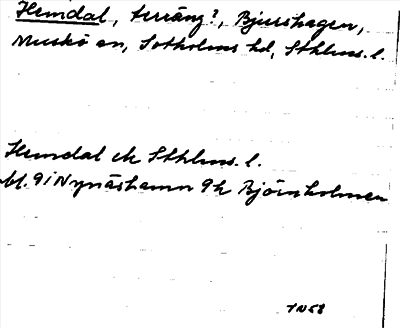 Hemdal, terräng?, Bjurshagen,
Muskö sn, Sotholms hd, Sthlms. l.
Hemdal ek Sthlms. l.
bl. 9i Nynäshamn 9h Björnholmen
IN58